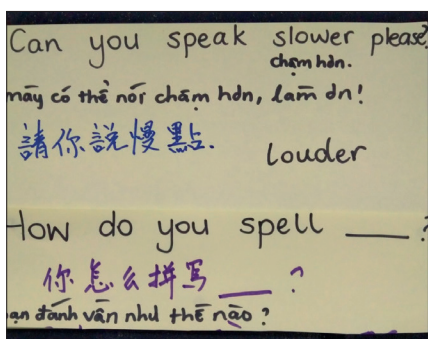 Can you speak slower please?
chậm hơn.
mày có thể nói chậm hơn, làm ơn!
請你說慢點.
louder
How do you spell ___?
你怎么拼写___?
bạn đánh vần như thế nào?